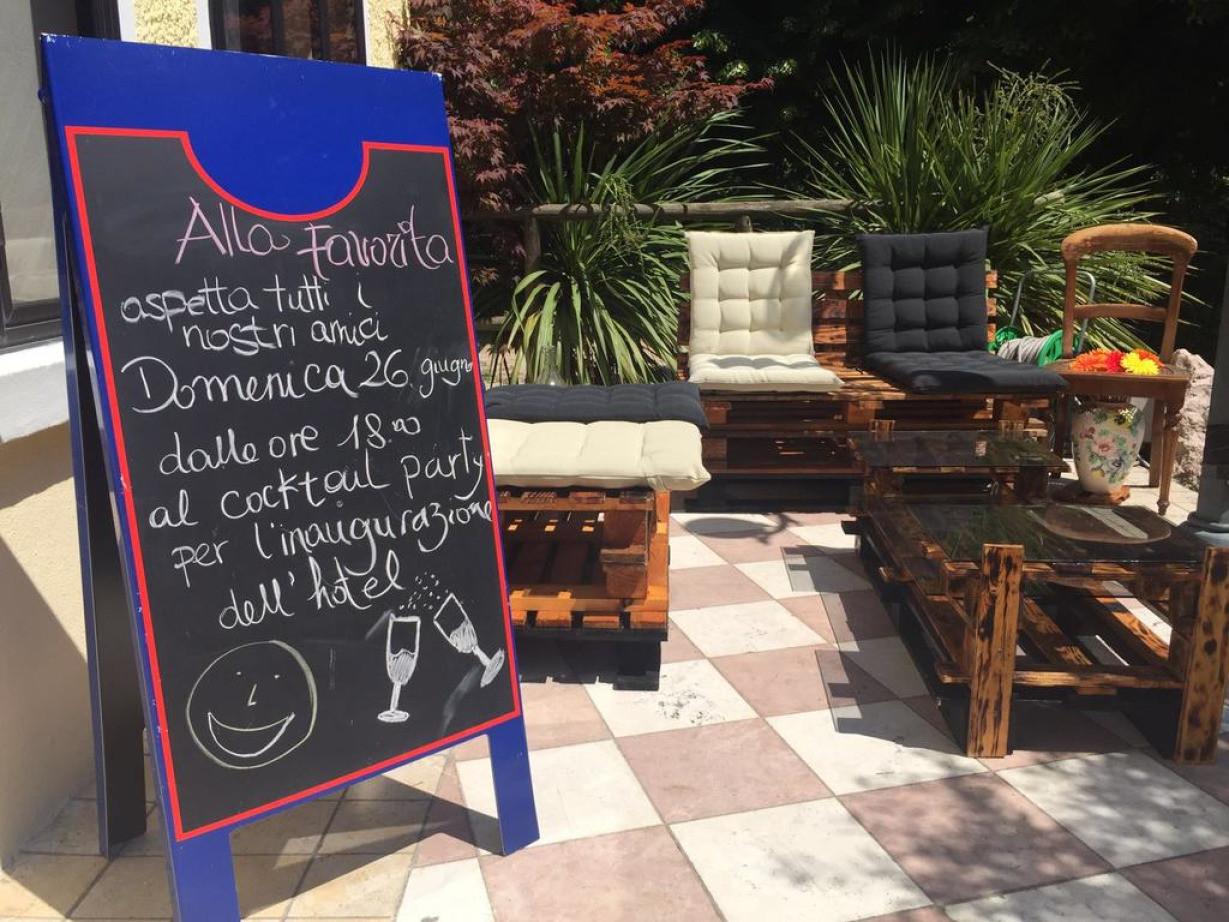 Alla Favorita
aspetta tutti i
nostri amici
Domenica 26 giugno
dalle ore 18.00
al cocktail party
per l'inaugurazione
dell'hotel